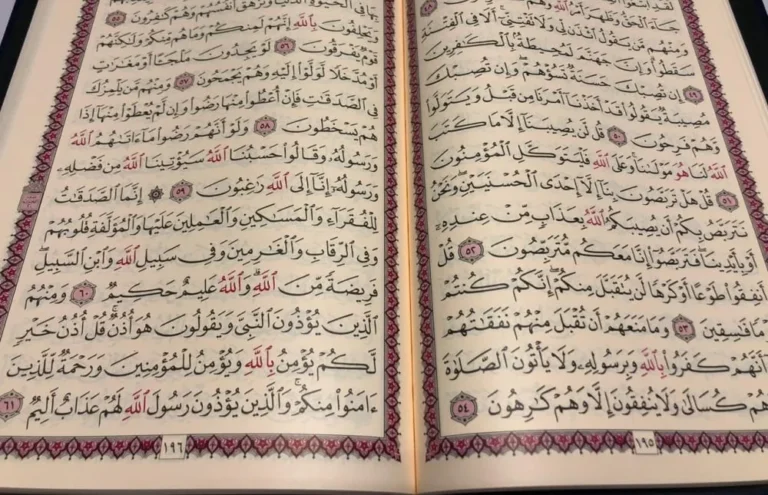 لَقَدِ ٱبْتَغَوُا۟
جَآءَ ٱلْحَقُّ وَظَهَرَ أَمْرُ ٱللَّهِ وَهُمْ كَٰرِهُونَ ٤٨
وَمِنْهُم مَّن يَقُولُ ٱئْذَن لِّى وَلَا تَفْتِنِّىٓ أَلَا فِى ٱلْفِتْنَةِ
سَقَطُوا۟ وَإِنَّ جَهَنَّمَ لَمُحِيطَةٌۢ بِٱلْكَٰفِرِينَ
٤٩ إِن تُصِبْكَ حَسَنَةٌ تَسُؤْهُمْ وَإِن تُصِبْكَ
مُصِيبَةٌ يَقُولُوا۟ قَدْ أَخَذْنَآ أَمْرَنَا مِن قَبْلُ وَيَتَوَلَّوا۟
وَّهُمْ فَرِحُونَ ٥٠ قُل لَّن يُصِيبَنَآ إِلَّا مَا كَتَبَ
ٱللَّهُ لَنَا هُوَ مَوْلَىٰنَا وَعَلَى ٱللَّهِ فَلْيَتَوَكَّلِ ٱلْمُؤْمِنُونَ
٥١ قُلْ هَلْ تَرَبَّصُونَ بِنَآ إِلَّآ إِحْدَى ٱلْحُسْنَيَيْنِ وَنَحْنُ
نَتَرَبَّصُ بِكُمْ أَن يُصِيبَكُمُ ٱللَّهُ بِعَذَابٍ مِّنْ عِندِهِۦٓ
أَوْ بِأَيْدِينَا فَتَرَبَّصُوٓا۟ إِنَّا مَعَكُم مُّتَرَبِّصُونَ ٥٢ قُلْ
أَنفِقُوا۟ طَوْعًا أَوْ كَرْهًا لَّن يُتَقَبَّلَ مِنكُمْ إِنَّكُمْ كُنتُمْ قَوْمًا
فَٰسِقِينَ ٥٣ وَمَا مَنَعَهُمْ أَن تُقْبَلَ مِنْهُمْ نَفَقَٰتُهُمْ إِلَّآ
أَنَّهُمْ كَفَرُوا۟ بِٱللَّهِ وَبِرَسُولِهِۦ وَلَا يَأْتُونَ ٱلصَّلَوٰةَ إِلَّا
وَهُمْ كُسَالَىٰ وَلَا يُنفِقُونَ إِلَّا وَهُمْ كَٰرِهُونَ ٥٤
١٩٥
بِهَا فِى ٱلْحَيَوٰةِ ٱلدُّنْيَا وَتَزْهَقَ أَنفُسُهُمْ وَهُمْ كَٰفِرُونَ ٥٥
وَيَحْلِفُونَ بِٱللَّهِ إِنَّهُمْ لَمِنكُمْ وَمَا هُم مِّنكُمْ وَلَٰكِنَّهُمْ
قَوْمٌ يَفْرَقُونَ ٥٦ لَوْ يَجِدُونَ مَلْجَـًٔا أَوْ مَغَٰرَٰتٍ
أَوْ مُدَّخَلًا لَّوَلَّوْا۟ إِلَيْهِ وَهُمْ يَجْمَحُونَ ٥٧ وَمِنْهُم مَّن يَلْمِزُكَ
فِى ٱلصَّدَقَٰتِ فَإِنْ أُعْطُوا۟ مِنْهَا رَضُوا۟ وَإِن لَّمْ يُعْطَوْا۟ مِنْهَآ إِذَا
هُمْ يَسْخَطُونَ ٥٨ وَلَوْ أَنَّهُمْ رَضُوا۟ مَآ ءَاتَىٰهُمُ ٱللَّهُ
وَرَسُولُهُۥ وَقَالُوا۟ حَسْبُنَا ٱللَّهُ سَيُؤْتِينَا ٱللَّهُ مِن فَضْلِهِۦ
وَرَسُولُهُۥٓ إِنَّآ إِلَى ٱللَّهِ رَٰغِبُونَ ٥٩ ۞ إِنَّمَا ٱلصَّدَقَٰتُ
لِلْفُقَرَآءِ وَٱلْمَسَٰكِينِ وَٱلْعَٰمِلِينَ عَلَيْهَا وَٱلْمُؤَلَّفَةِ قُلُوبُهُمْ
وَفِى ٱلرِّقَابِ وَٱلْغَٰرِمِينَ وَفِى سَبِيلِ ٱللَّهِ وَٱبْنِ ٱلسَّبِيلِ
فَرِيضَةً مِّنَ ٱللَّهِ وَٱللَّهُ عَلِيمٌ حَكِيمٌ ٦٠ وَمِنْهُمُ
ٱلَّذِينَ يُؤْذُونَ ٱلنَّبِىَّ وَيَقُولُونَ هُوَ أُذُنٌ قُلْ أُذُنُ خَيْرٍ
لَّكُمْ يُؤْمِنُ بِٱللَّهِ وَيُؤْمِنُ لِلْمُؤْمِنِينَ وَرَحْمَةٌ لِّلَّذِينَ
ءَامَنُوا۟ مِنكُمْ وَٱلَّذِينَ يُؤْذُونَ رَسُولَ ٱللَّهِ لَهُمْ عَذَابٌ أَلِيمٌ ٦١
١٩٦